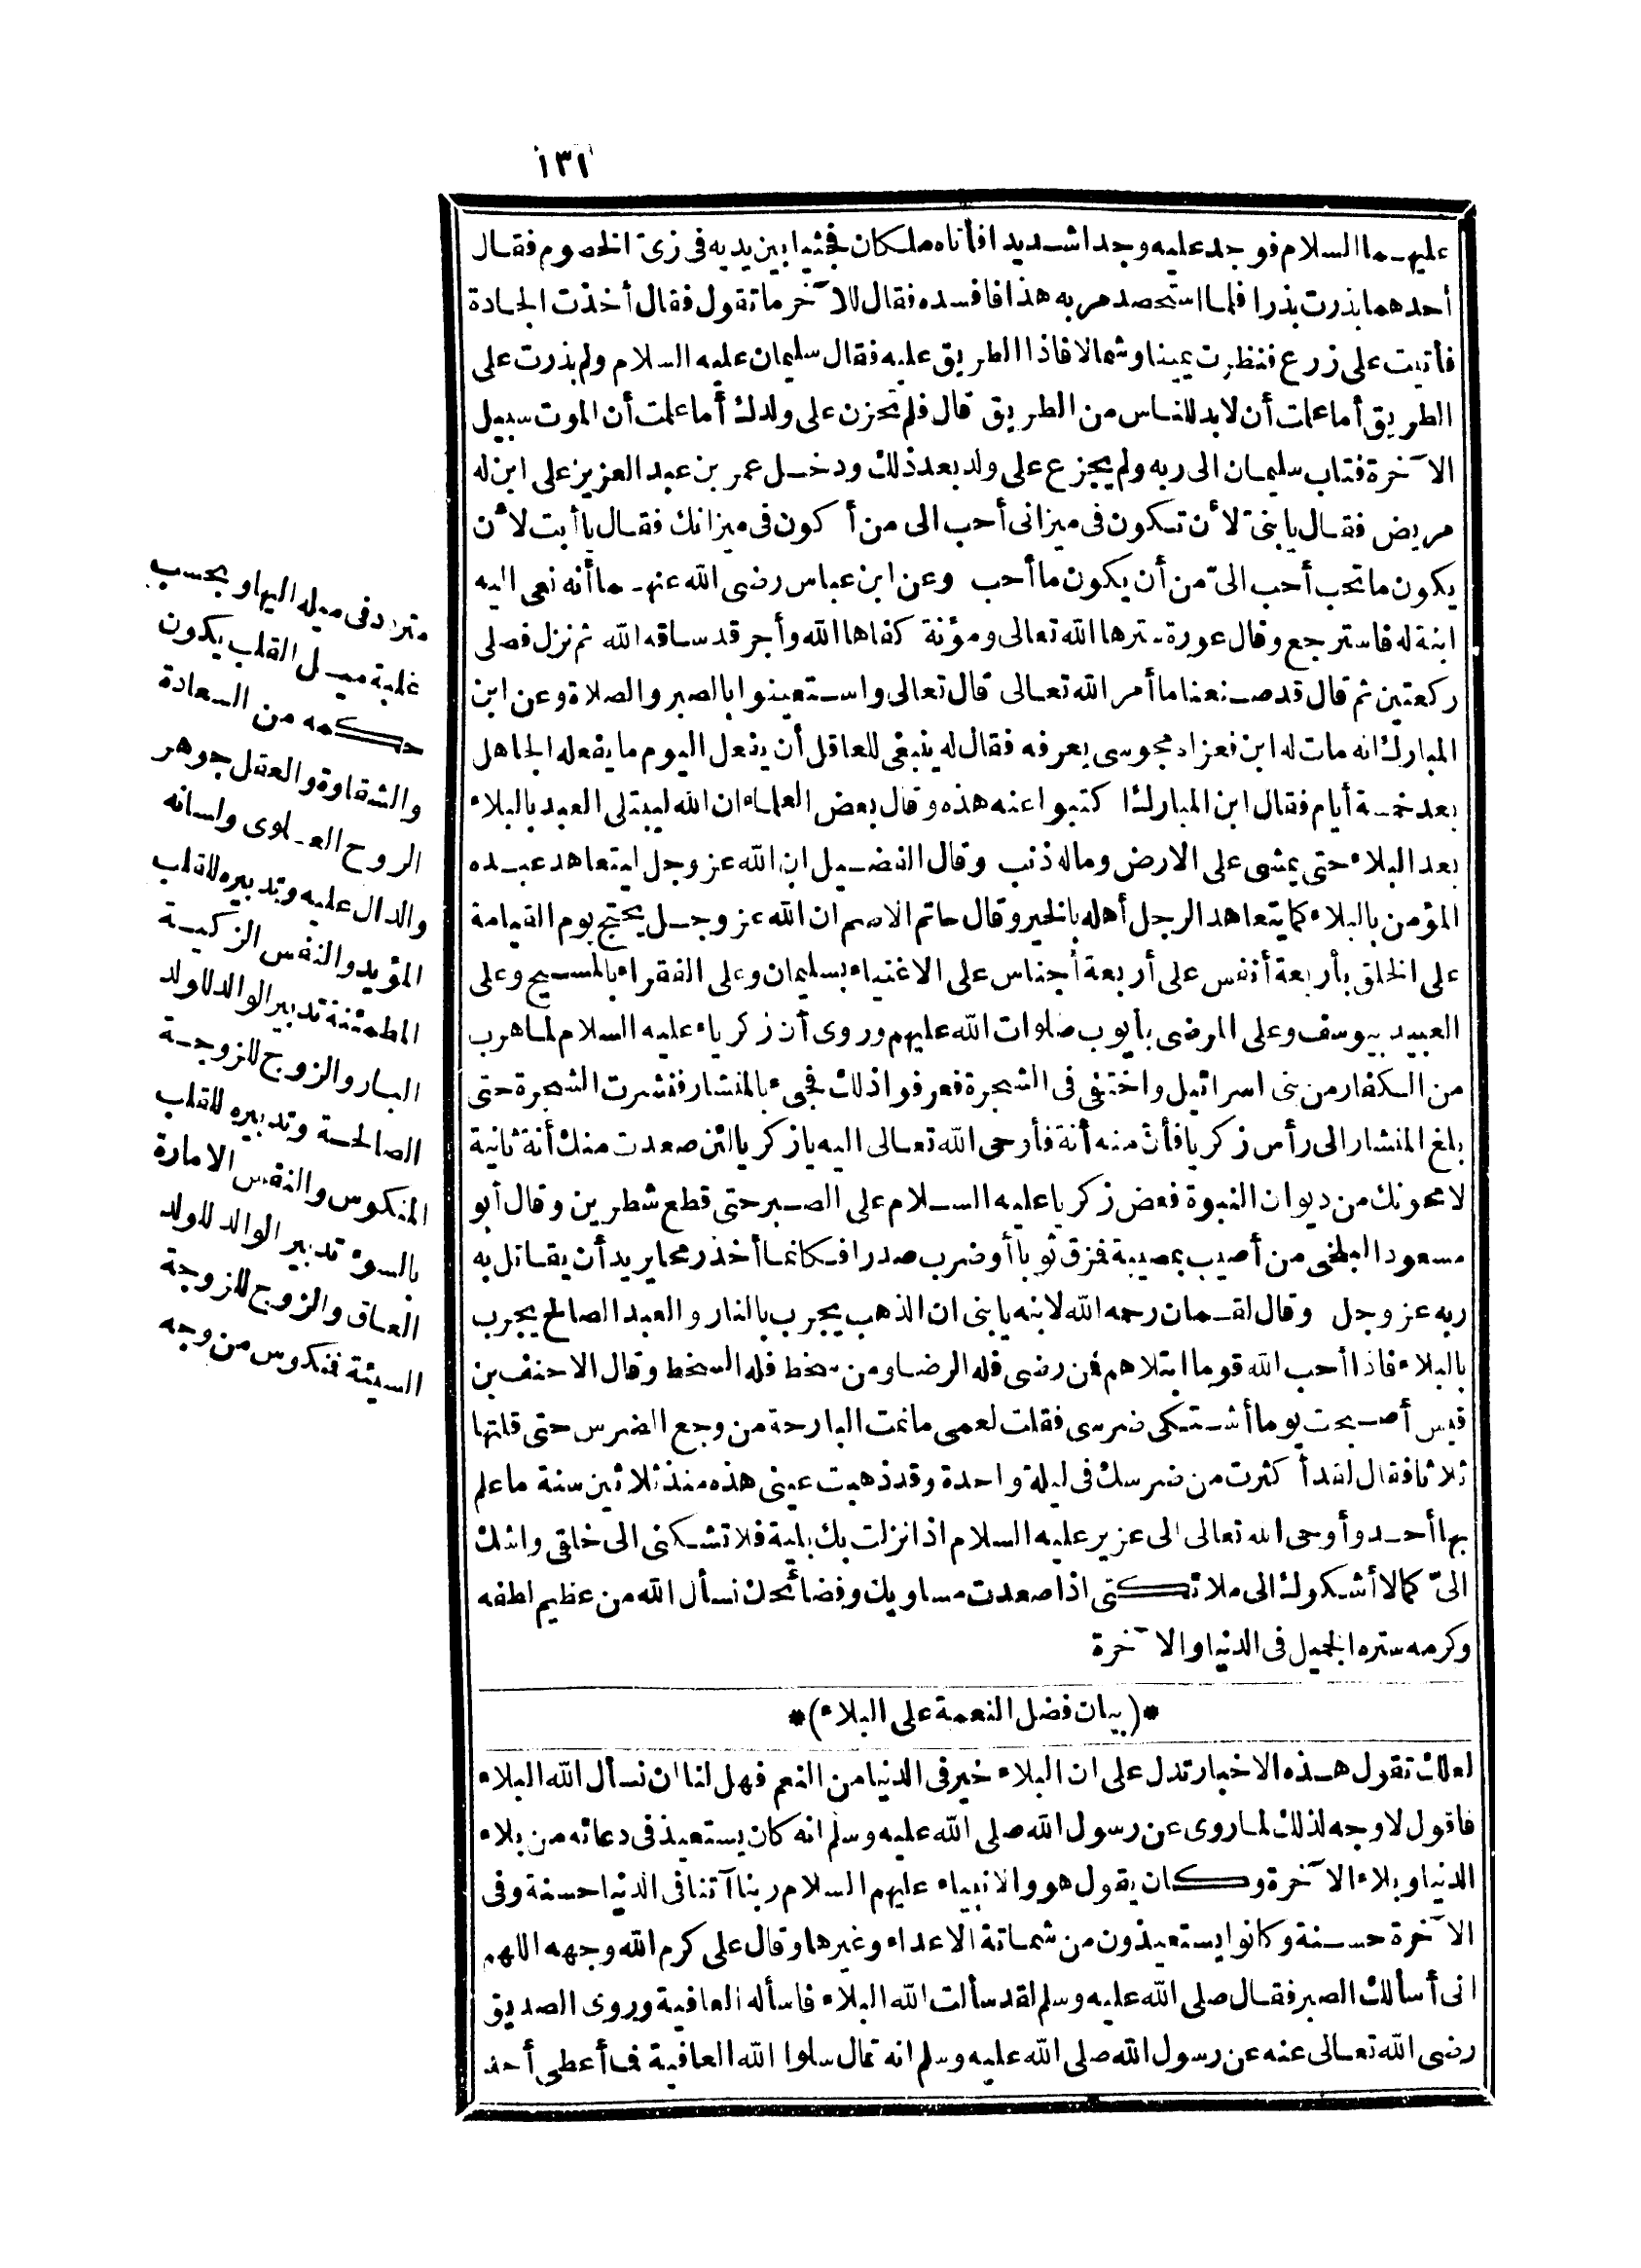 ١٣١
عليهما السلام فوجد عليه وجدا شديدا فأتاه ملكان فجثيا بين يديه فى زىّ الخصوم فقال
أحدهما بذرت بذرا فلما استحصد مر به هذا فافسده فقال للآخر ما تقول فقال أخذت الجادة
فأتيت على زرع فنظرت يمينا وشمالا فاذا الطريق عليه فقال سليمان عليه السلام ولم بذرت على
الطريق أما علمت أن لابد للناس من الطريق قال فلم تحزن على ولدك أما علمت أن الموت سبيل
الآخرة فتاب سليمان الى ربه ولم يجزع على ولد بعد ذلك ودخل عمر بن عبد العزيز على ابن له
مريض فقال يا بنىّ لأن تكون فى ميزانى أحب الى من أكون فى ميزانك فقال يا أبت لأن
يكون ما تحب أحب الىّ من أن يكون ما أحب وعن ابن عباس رضى الله عنهما أنه نعى اليه
ابنة له فاسترجع وقال عورة سترها الله تعالى ومؤنة كفاها الله وأجر قد ساقه الله ثم نزل فصلى
ركعتين ثم قال قد صنعنا ما أمر الله تعالى قال تعالى واستعينوا بالصبر والصلاة وعن ابن
المبارك انه مات له ابن فعزاه مجوسى يعرفه فقال له ينبغى للعاقل أن يفعل اليوم ما يفعله الجاهل
بعد خمسة أيام فقال ابن المبارك اكتبوا عنه هذه وقال بعض العلماء ان الله ليبتلى العبد بالبلاء
بعد البلاء حتى يمشى على الارض وماله ذنب وقال الفضيل ان الله عز وجل ليتعاهد عبده
المؤمن بالبلاء كما يتعاهد الرجل أهله بالخير وقال حاتم الاصم ان الله عز وجل يحتج يوم القيامة
على الخلق بأربعة أنفس على أربعة أجناس على الاغنياء بسليمان وعلى الفقراء بالمسيح وعلى
العبيد بيوسف وعلى المرضى بأيوب صلوات الله عليهم وروى أن زكرياء عليه السلام لما هرب
من الكفار من بنى اسرائيل واختفى فى الشجرة فعرفوا ذلك فجىء بالمنشار فنشرت الشجرة حتى
بلغ المنشار الى رأس زكريا فأن منه أنة فأوحى الله تعالى اليه يا زكريا لئن صعدت منك أنة ثانية
لامحونك من ديوان النبوة فعض زكريا عليه السلام على الصبر حتى قطع شطرين وقال أبو
مسعود البلخى من أصيب بمصيبة فمزق ثوبا أو ضرب صدرا فكانما أخذ رمحا يريد أن يقاتل به
ربه عز وجل وقال لقمان رحمه الله لابنه يا بنى ان الذهب يجرب بالنار والعبد الصالح يجرب
بالبلاء فاذا أحب الله قوما ابتلاهم فمن رضى فله الرضا ومن سخط فله السخط وقال الاحنف بن
قيس أصبحت يوما أشتكى ضرسى فقلت لعمى ما نمت البارحة من وجع الضرس حتى قلتها
ثلاثا فقال لقد أكثرت من ضرسك فى ليلة واحدة وقد ذهبت عينى هذه منذ ثلاثين سنة ما علم
بها أحد وأوحى الله تعالى الى عزير عليه السلام اذا نزلت بك بلية فلا تشكنى الى خلقى واشك
الىّ كما لا أشكوك الى ملائكتى اذا صعدت مساويك وفضائحك نسأل الله من عظيم لطفه
وكرمه ستره الجميل فى الدنيا والآخرة
*(بيان فضل النعمة على البلاء)*
لعلك تقول هذه الاخبار تدل على ان البلاء خير فى الدنيا من النعم فهل لنا ان نسأل الله البلاء
فاقول لا وجه لذلك لما روى عن رسول الله صلى الله عليه وسلم انه كان يستعيذ فى دعائه من بلاء
الدنيا وبلاء الآخرة وكان يقول هو والانبياء عليهم السلام ربنا آتنا فى الدنيا حسنة وفى
الآخرة حسنة وكانوا يستعيذون من شماتة الاعداء وغيرها وقال على كرم الله وجهه اللهم
انى أسألك الصبر فقال صلى الله عليه وسلم لقد سألت الله البلاء فاسأله العافية وروى الصديق
رضى الله تعالى عنه عن رسول الله صلى الله عليه وسلم انه قال سلوا الله العافية فما أعطى أحد
متردد فى ميله اليها وبحسب
غلبة ميل القلب يكون
حكمه من السعادة
والشقاوة والعقل جوهر
الروح العلوى ولسانه
والدال عليه وتدبيره للقلب
المؤيد والنفس الزكية
المطمئنة تدبير الوالد للولد
البار والزوج للزوجة
الصالحة وتدبيره للقلب
المنكوس والنفس الامارة
بالسوء تدبير الوالد للولد
العاق والزوج للزوجة
السيئة فمنكوس من وجه